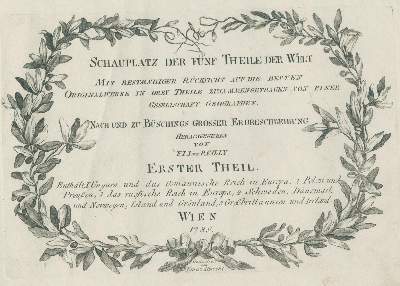 SCHAUPLATZ DER FÜNF THEILE DER WELT
MIT BESTÆNDIGER RÜCKSICHT AUF DIE BESTEN
ORIGINALWERKE IN DREY THEILE ZUSAMMENGETRAGEN VON EINER
GESELLSCHAFT GEOGRAPHEN.
NACH UND ZU BÜSCHINGS GROSSER ERDBESCHREIBUNG
HERAUSGEGEBEN
VON
F. I. I. von REILLY
ERSTER THEIL.
Enthält, 1 Ungarn und das Osmannische Reich in Europa, 2 Polen und
Preußen, 3 das russische Reich in Europa, 4 Schweden, Dänemark
und Norwegen, Island und Grönland, 5 Großbrittannien und Irland
WIEN